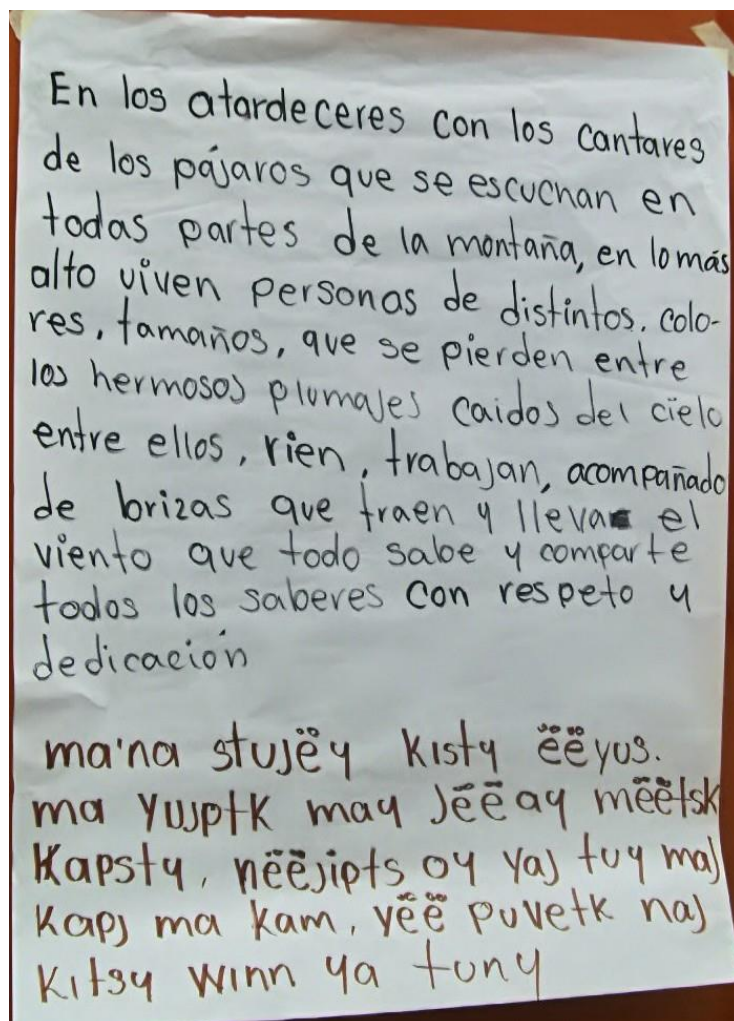 En los atardeceres con los cantares
de los pájaros que se escuchan en
todas partes de la montaña, en lo más
alto viven personas de distintos, colo-
res, tamaños, que se pierden entre
los hermosos plumajes caidos del cielo
entre ellos, rien, trabajan, acompañado
de brizas que traen y lleva el
viento que todo sabe y comparte
todos los saberes con respeto y
dedicación
ma'na stujëy kisty ëëyus.
ma yujptk may jëëay mëëtsk
kapsty, nëëjipts oy yaj tuy maj
kapj ma kam, yëë puvetk naj
kitsy winn ya tuny